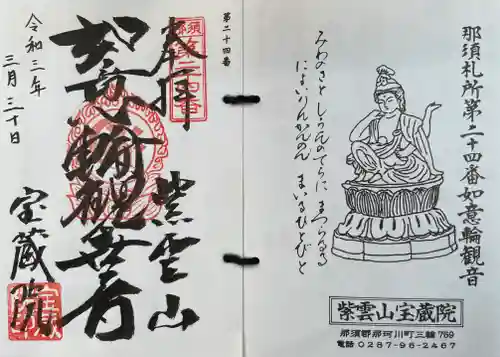 那須札所第二十四番如意輪観音
みわのさとしうんのてらに まつらるる
によいりんかんのん まいるひとびと
紫雲山宝蔵院
那須郡那珂川町三輪769
電話 0287-96-2467
第二十四番
奉拝
紫雲山
如意輪観世音
宝蔵院
令和三年
三月三十日
那須
第二四番